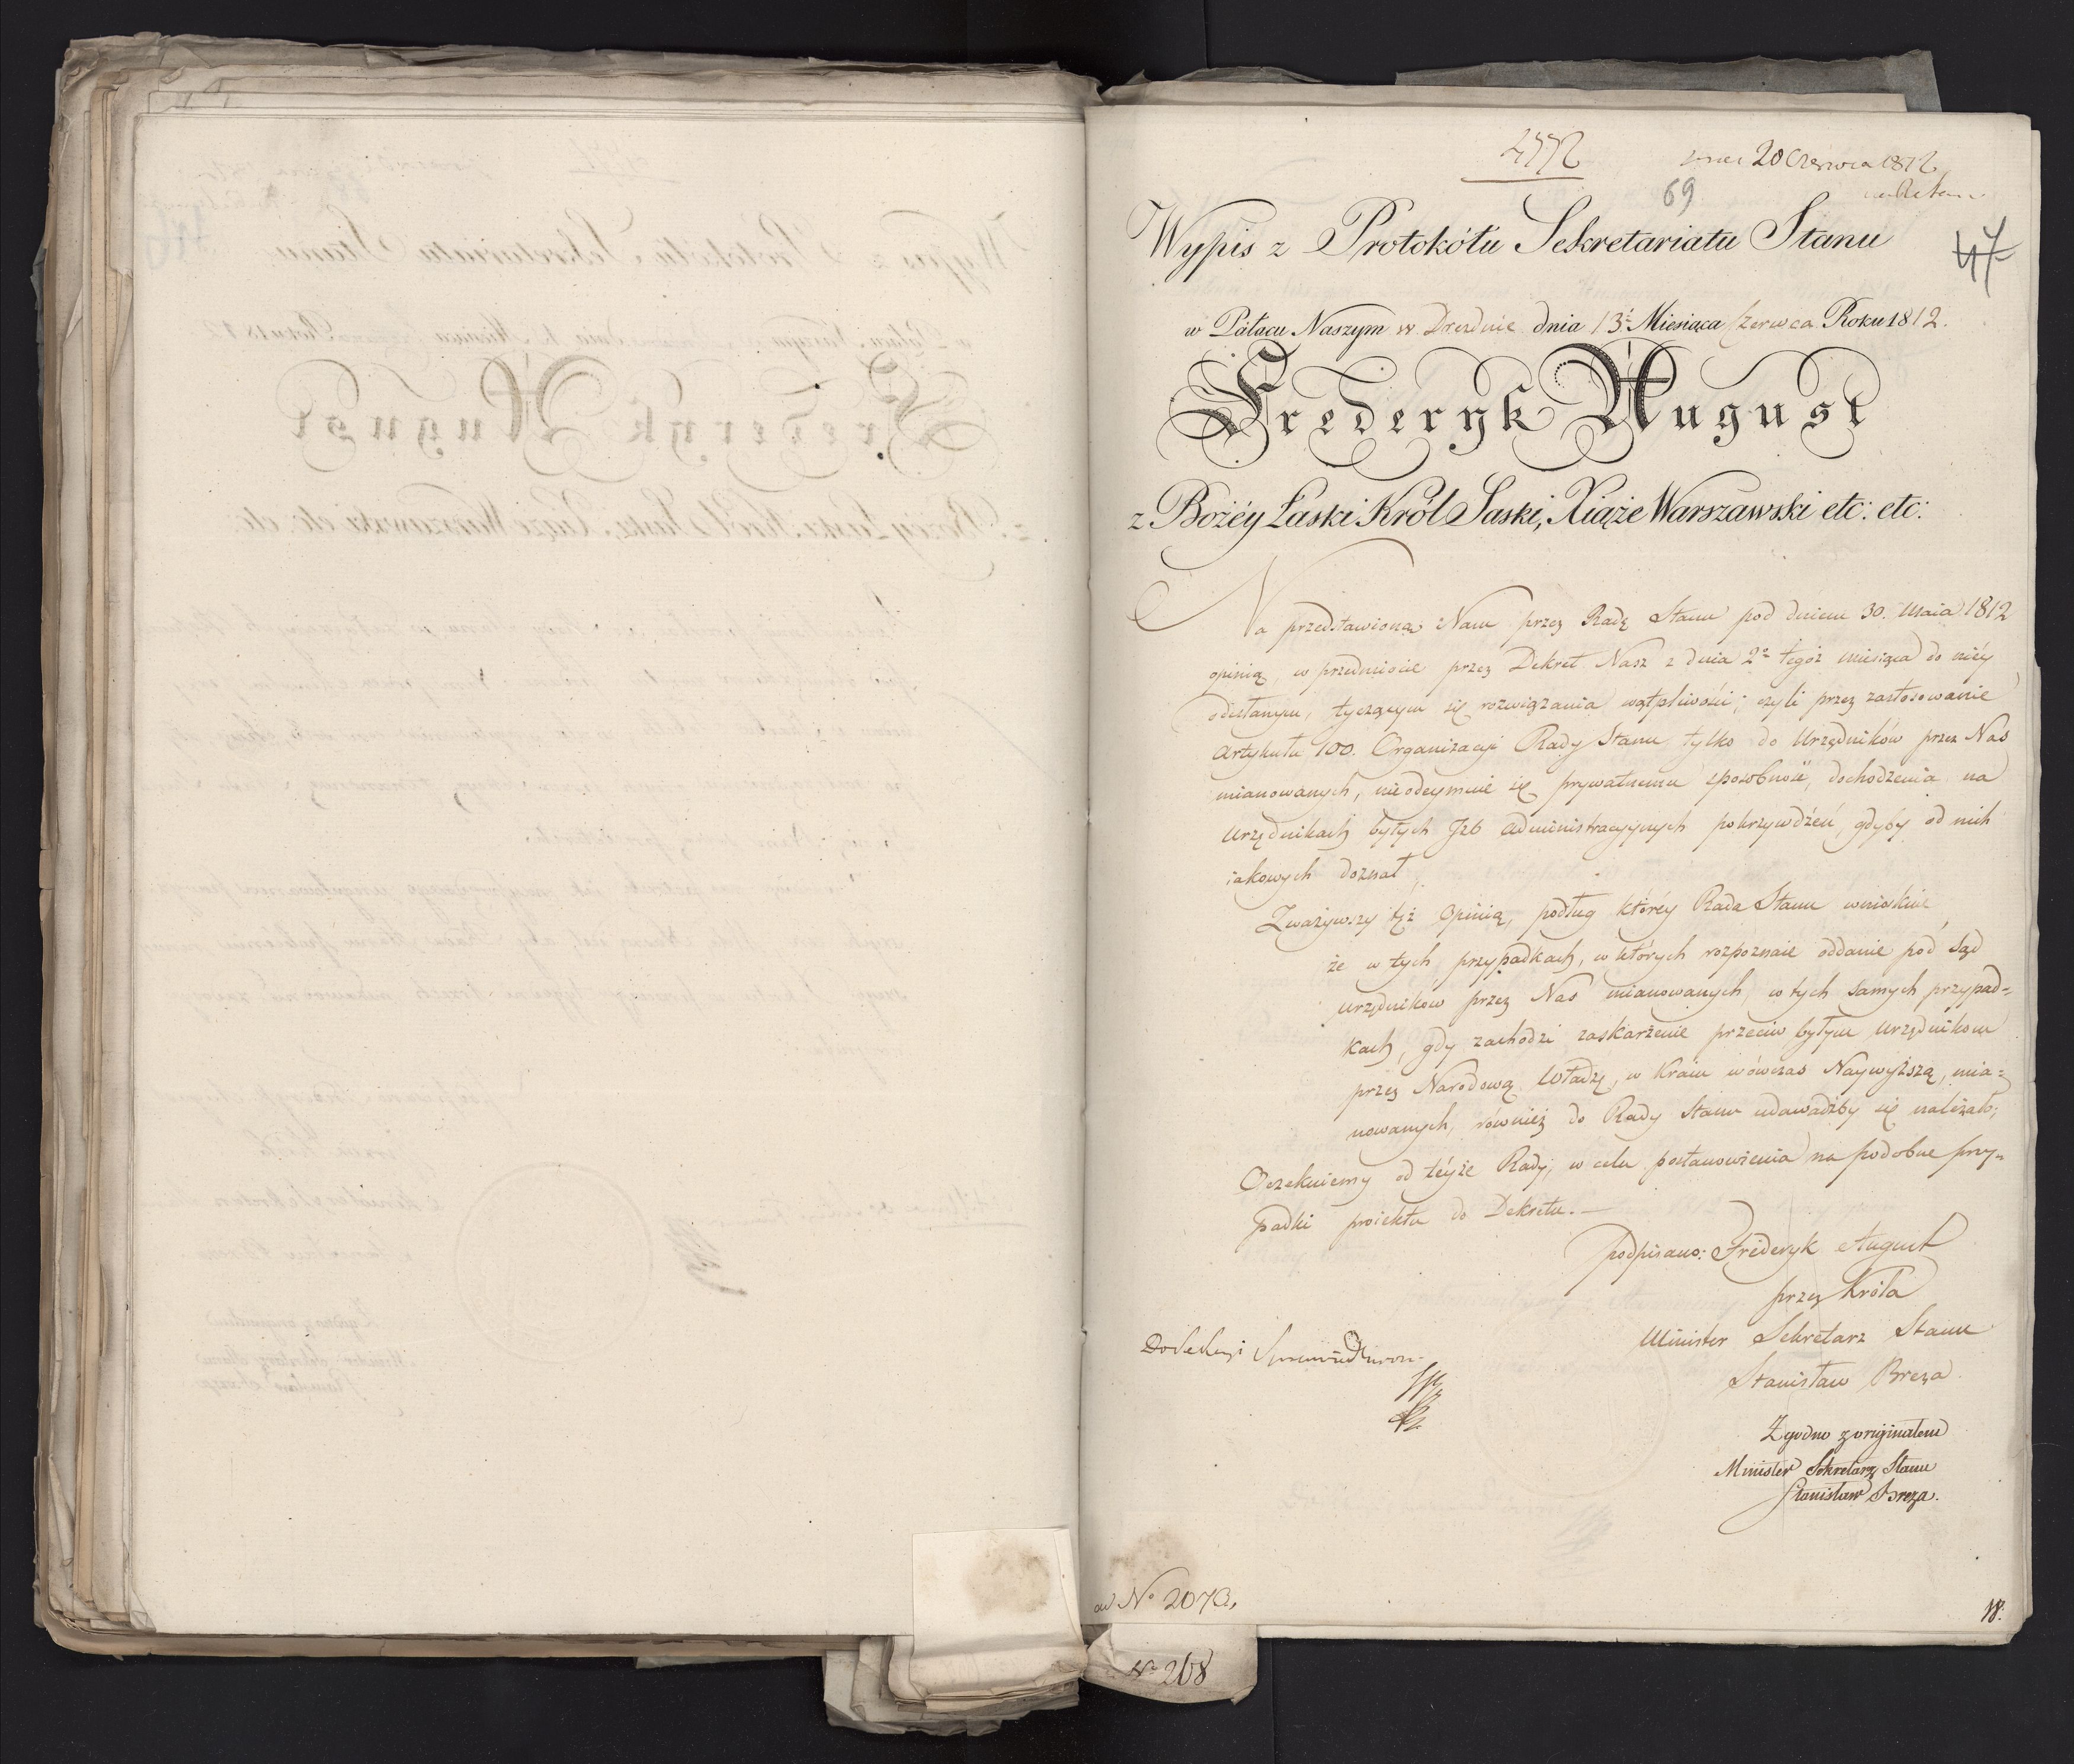 20 Czerwca 1812
69
47
Wypis z Protokółu Sekretariatu Stanu
w Pałacu Naszym w Dreznie dnia 13. Miesiąca Czerwca Roku 1812.
Frederyk August
z Bożéy Łaski Król Saski, Xiąże Warszawski etc: etc:
Na przedstawioną Nam przez Radę Stanu pod dniem 30. Maia 1812
opinią, w przedmiocie przez Dekret Nasz z dnia 2º tegoż miesiąca do niéy
odesłanym, tyczącym się rozwiązania wątpliwości; czyli przez zastosowanie
Artykułu 100. Organizacyi Rady Stanu tylko do Urzędników przez Nas
mianowanych, nieodeymuie się prywatnemu sposobność, dochodzenia na
Urzędnikach byłych Izb Administracyjnych pokrzywdzeń, gdyby od nich
iakowych doznał,
Zważywszy tęż Opinią, podług któréy Rada Stanu wnioskuie
że w tych przypadkach, w których rozpoznaie oddanie pod Sąd
urzędnikow przez Nas mianowanych, w tych samych przypad=
kach, gdy zachodzi zaskarżenie przeciw byłym urzędnikom
przez Narodową Władzę, w Kraiu wówczas Naywyższą, mia=
nowanych, również do Rady Stanu udawaćby się należało;
Oczekuiemy od téyże Rady, w celu postanowienia na podobne przy=
padki proiektu do Dekretu.—
podpisano: Frideryk August
przez Króla
Minister Sekretarz Stanu
Stanisław Breza.
Do Sekcyi
Zgodno z originałem
Minister Sekretarz Stanu
Stanisław Breza.
ad Nº 2073,
18.
Nº 268